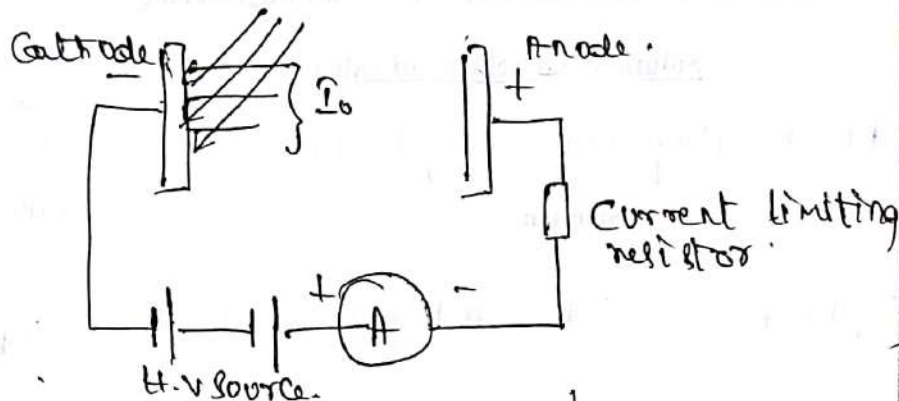 Cathode
Anode.
−
+
I₀
Current limiting
resistor.
+
A
-
H.V Source.